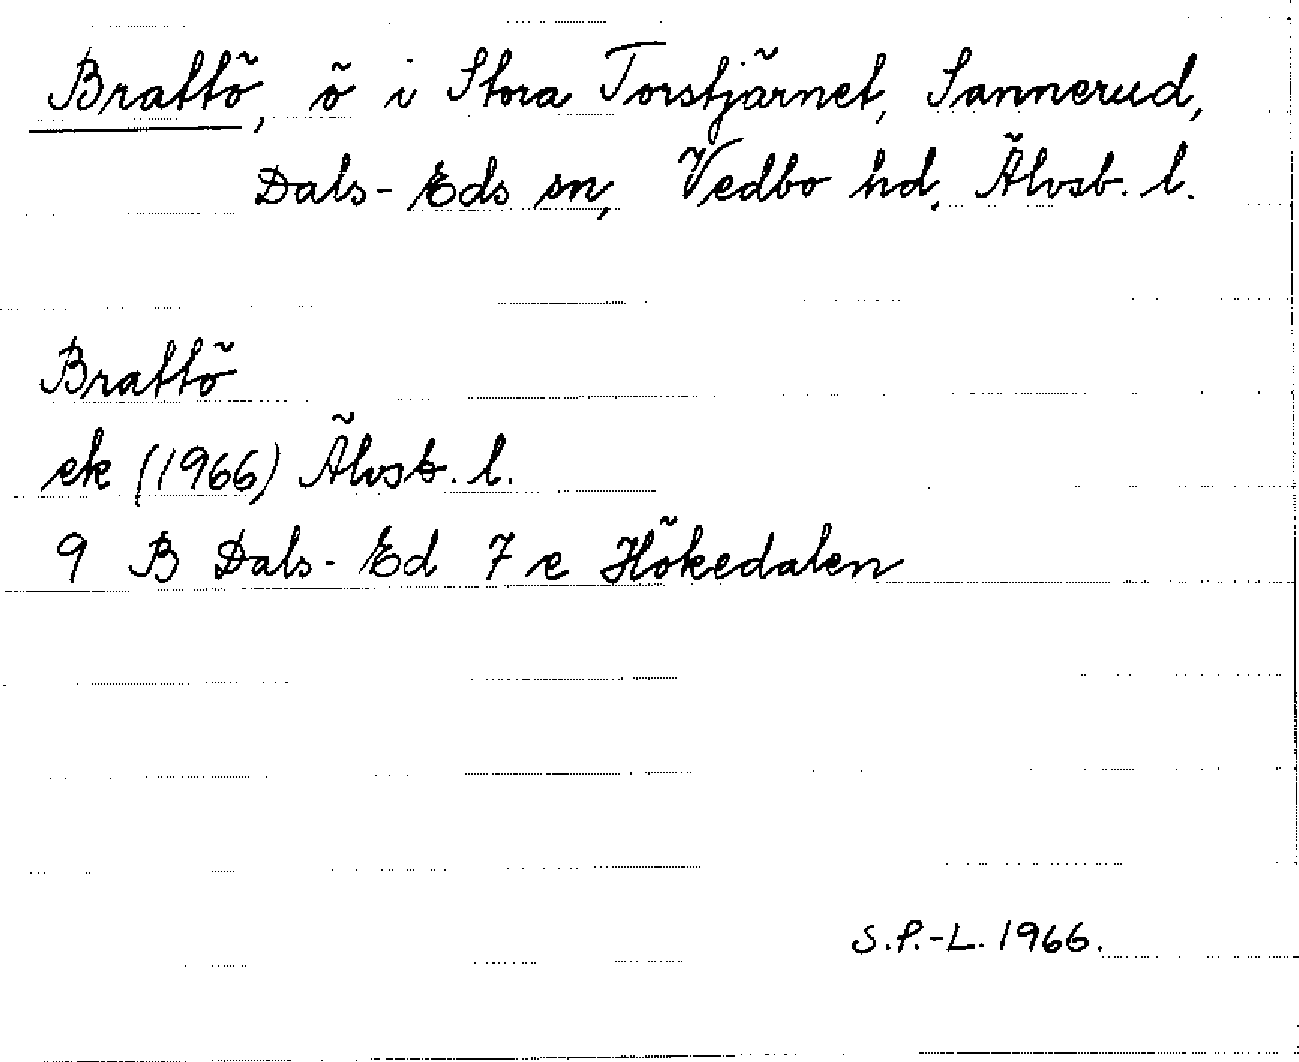 Brattö, ö i Stora Torstjärnet, Sannerud,
Dals-Eds sn, Vedbo hd. Älvsb. l.
Brattö
ek (1966) Älvsb. l.
9 B Dals-Ed 7 e Hökedalen
S.P.-L. 1966.